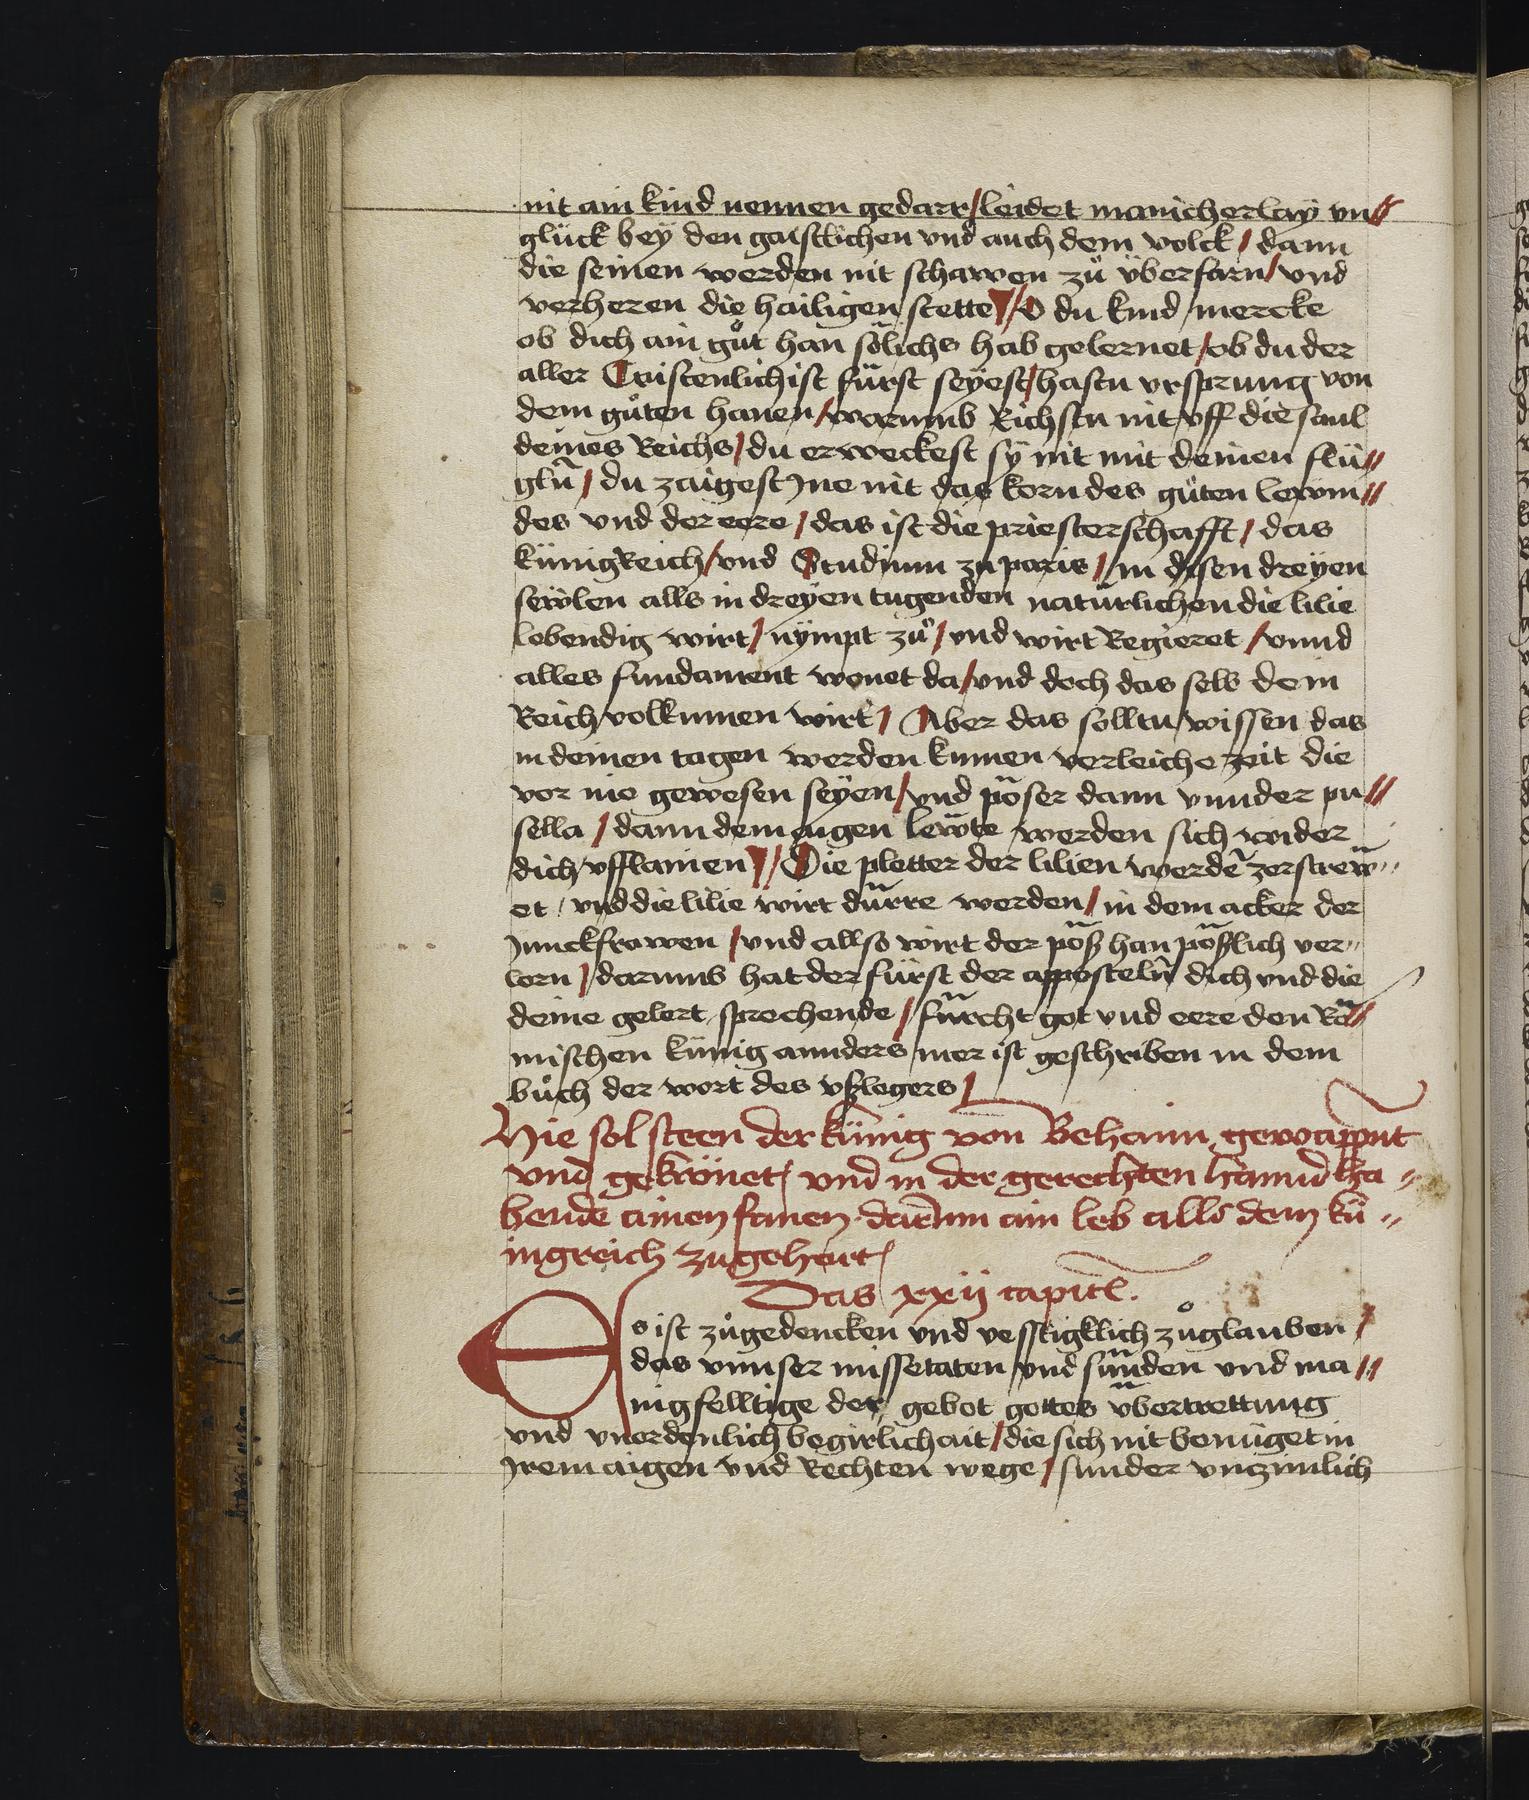 nit ain kind nennen gedarr / leidet manicherlay vn //
glück bey den gaistlichen vnd auch dem volck / dann
die seinen werden nit schawen zů überfarn / vnd
verheren die hailigen stette // O du kind mercke
ob dich ain gůt han sölichs hab gelernet / ob du der
aller Cristenlichist fürst seyest / hastu vrsprung von
dem gůten hanen / warumb Richstu nit vff die saul
deines Reichs / du erweckest sÿ nit mit deinen flü //
glñ / du zaigest Jne nit das korn des gůten lewm //
des vnd der eere / das ist die priesterschafft / das
künigReich / vnd Studium zu paris / in disen dreyen
sewlen alls in dreyen tugenden natürlichen die lilie
lebendig wirt / nÿmpt zů / vnd wirt Regieret / vnnd
alles fundament wonet da / vnd doch das selb dein
Reich volkumen wirt / Aber das solltu wissen das
in deinen tagen werden kumen verleiche zeit die
vor nie gewesen seyen / vnd pöser dann vnnder pu //
sella / dann dem aigen lewte werden sich wider
dich vfflainen // Die pletter der lilien werdẽ zerstrew //
et / vnd die lilie wirt dürre werden / in dem acker der
Junckfrawen / vnd allso wirt der pöß han pößlich ver //
lorn / darumb hat der fürst der appostelñ dich vnd die
deine gelert sprechende / fürcht got vnd eere den Rö //
mischen künig annders mer ist geschriben in dem
bůch der wort des vßlegers /
Hie sol steen der künig von Behaim gewappnt
vnd gekrönet / vnd in der gerechten hannd ha //
bende ainen fanen darinn ain leb alls dem kü //
ingreich zugehört /
Das xxij capitl.
Es ist zůgedencken vnd vesstigklich zůglauben /
das vnnser missetaten vnd sünden vnd ma //
nigfelltige der gebot gottes übertrettung
vnd vnordenlich begirlichait / die sich nit benüget in
Jrem aigen vnd Rechten wege / sunder vnzimlich